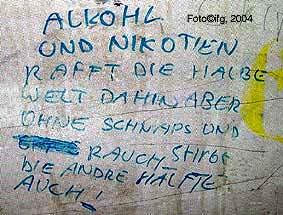 Foto©ifg, 2004
ALKOHL
UND NIKOTIEN
RAFFT DIE HALBE
WELT DAHIN ABER
OHNE SCHNAPS UND
RAUCH STIRBT
DIE ANDRE HÄLFTE
AUCH!